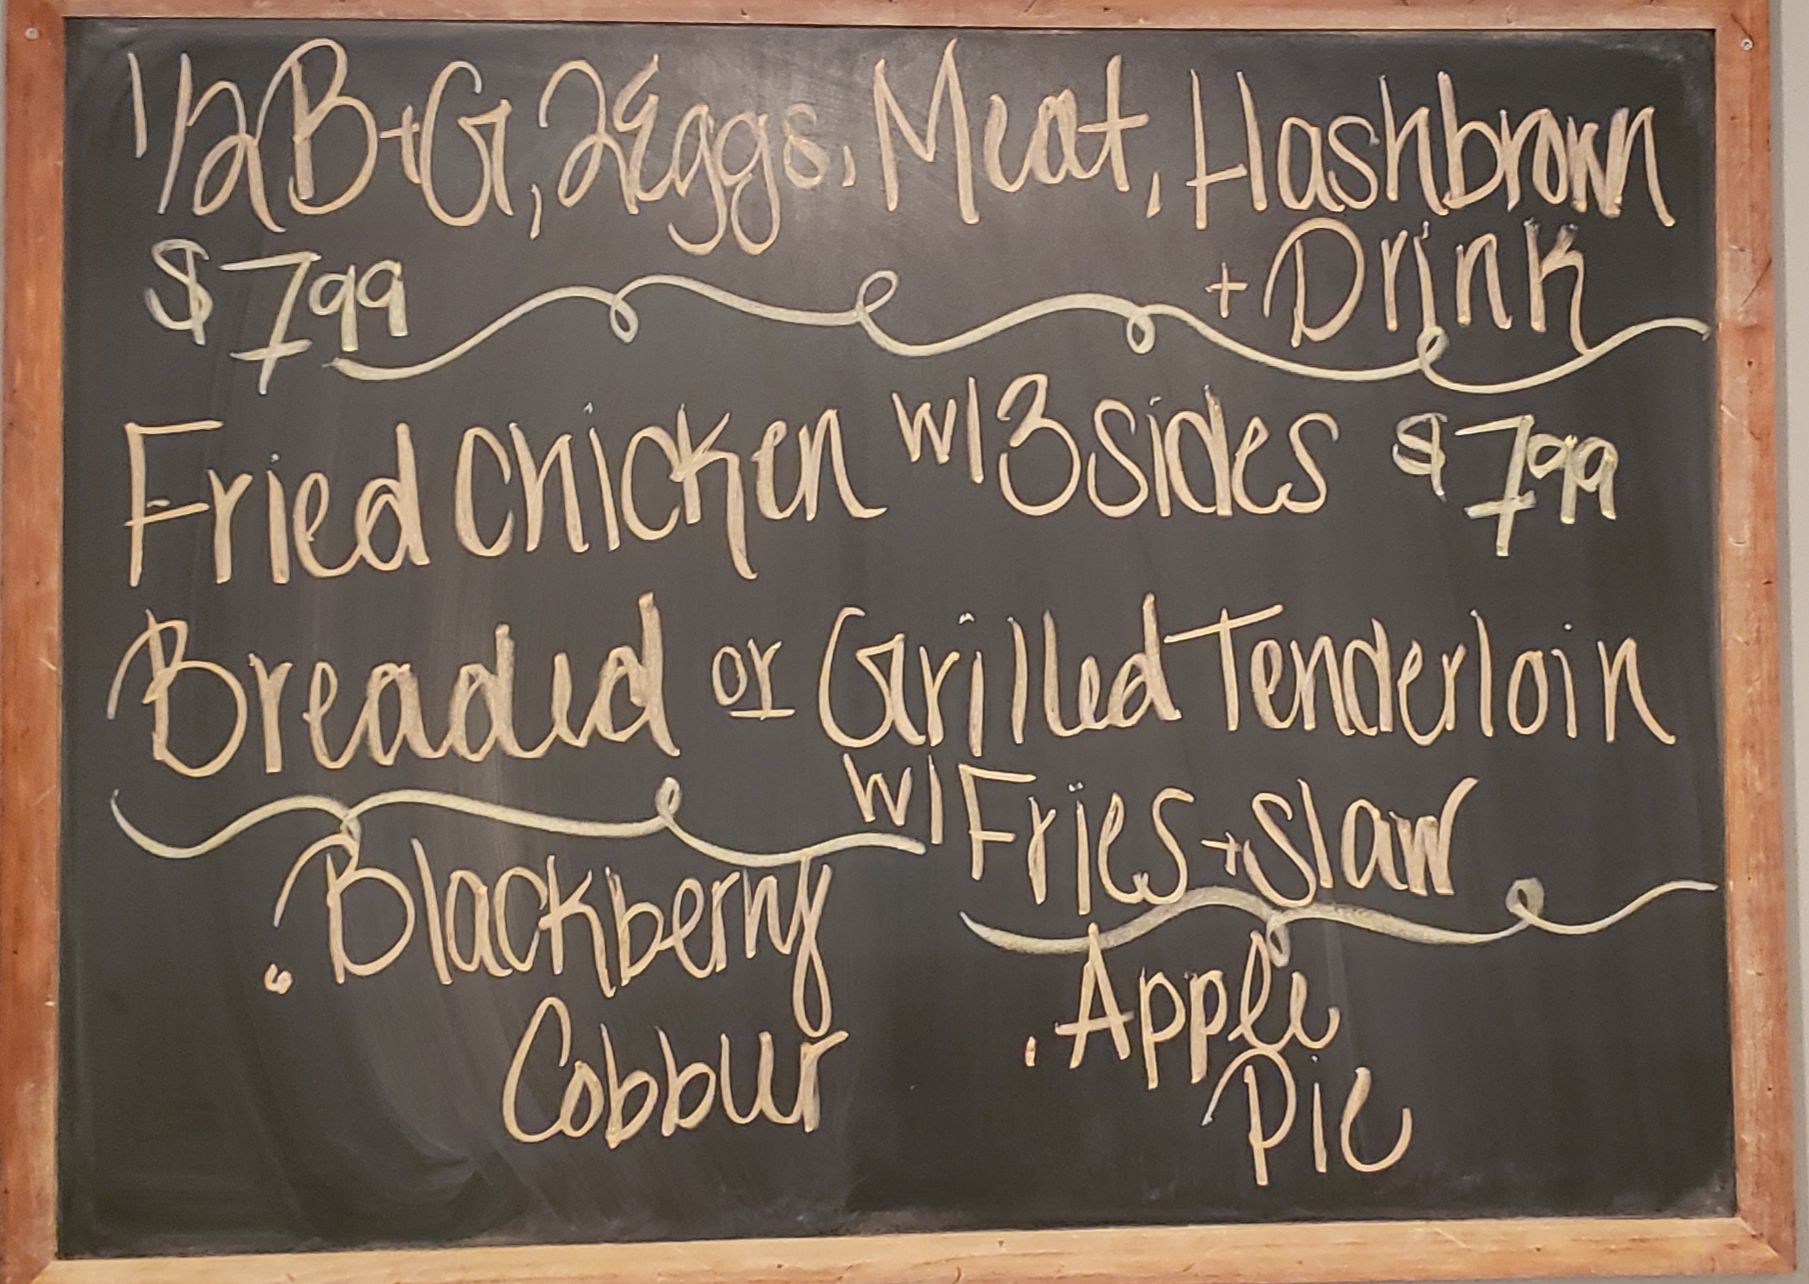 1/2 B+G, 2 Eggs, Meat, Hashbrown
$7.99 + Drink
Fried Chicken w/ 3 sides $7.99
Breaded or Grilled Tenderloin
w/ Fries + slaw
. Blackberry
Cobbler
. Apple
Pie